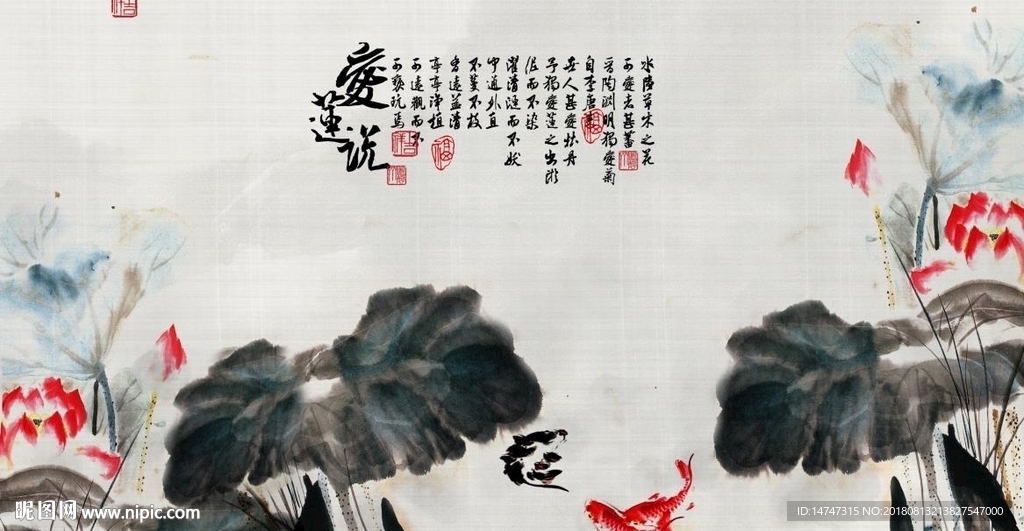 水陸草木之花
可愛者甚蕃
晉陶淵明獨愛菊
自李唐來
世人甚愛牡丹
予獨愛蓮之出淤
泥而不染
濯清漣而不妖
中通外直
不蔓不枝
香遠益清
亭亭淨植
可遠觀而不
可褻玩焉
愛蓮說
昵图网 www.nipic.com
ID:14747315 NO:20180813213827547000